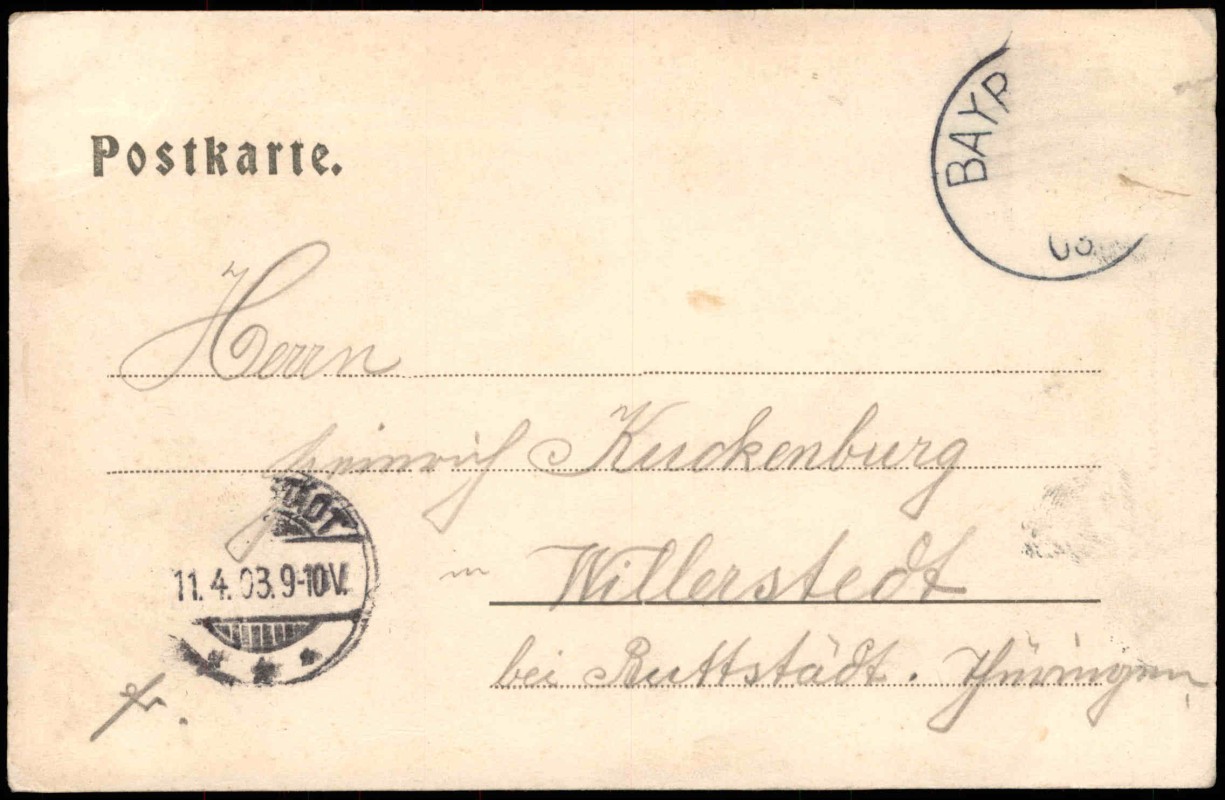 Postkarte.
BAYR
03
Herrn
Heinrich Kuckenburg
TÄDT
11.4.03.9-10V.
in Willerstedt
bei Buttstädt. Thüringen
fr.